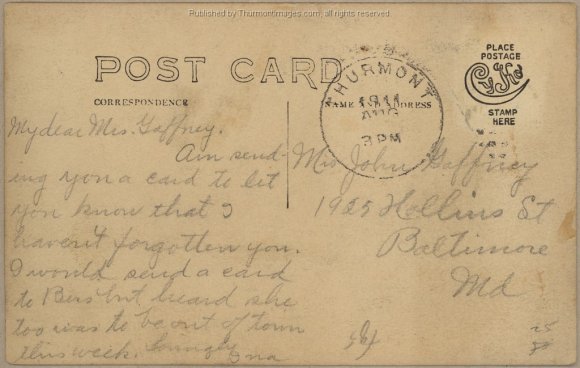 Published by Thurmontimages.com, all rights reserved.
POST CARD
CORRESPONDENCE
NAME AND ADDRESS
THURMONT
1911
AUG
3PM
PLACE
POSTAGE
STAMP
HERE
My dear Mrs. Gaffney.
Am send-
ing you a card to let
you know that I
haven't forgotten you.
I would send a card
to but heard she
too was to be out of town
this week.
Mrs John Gaffney
1925 Hollins St
Baltimore
Md
25